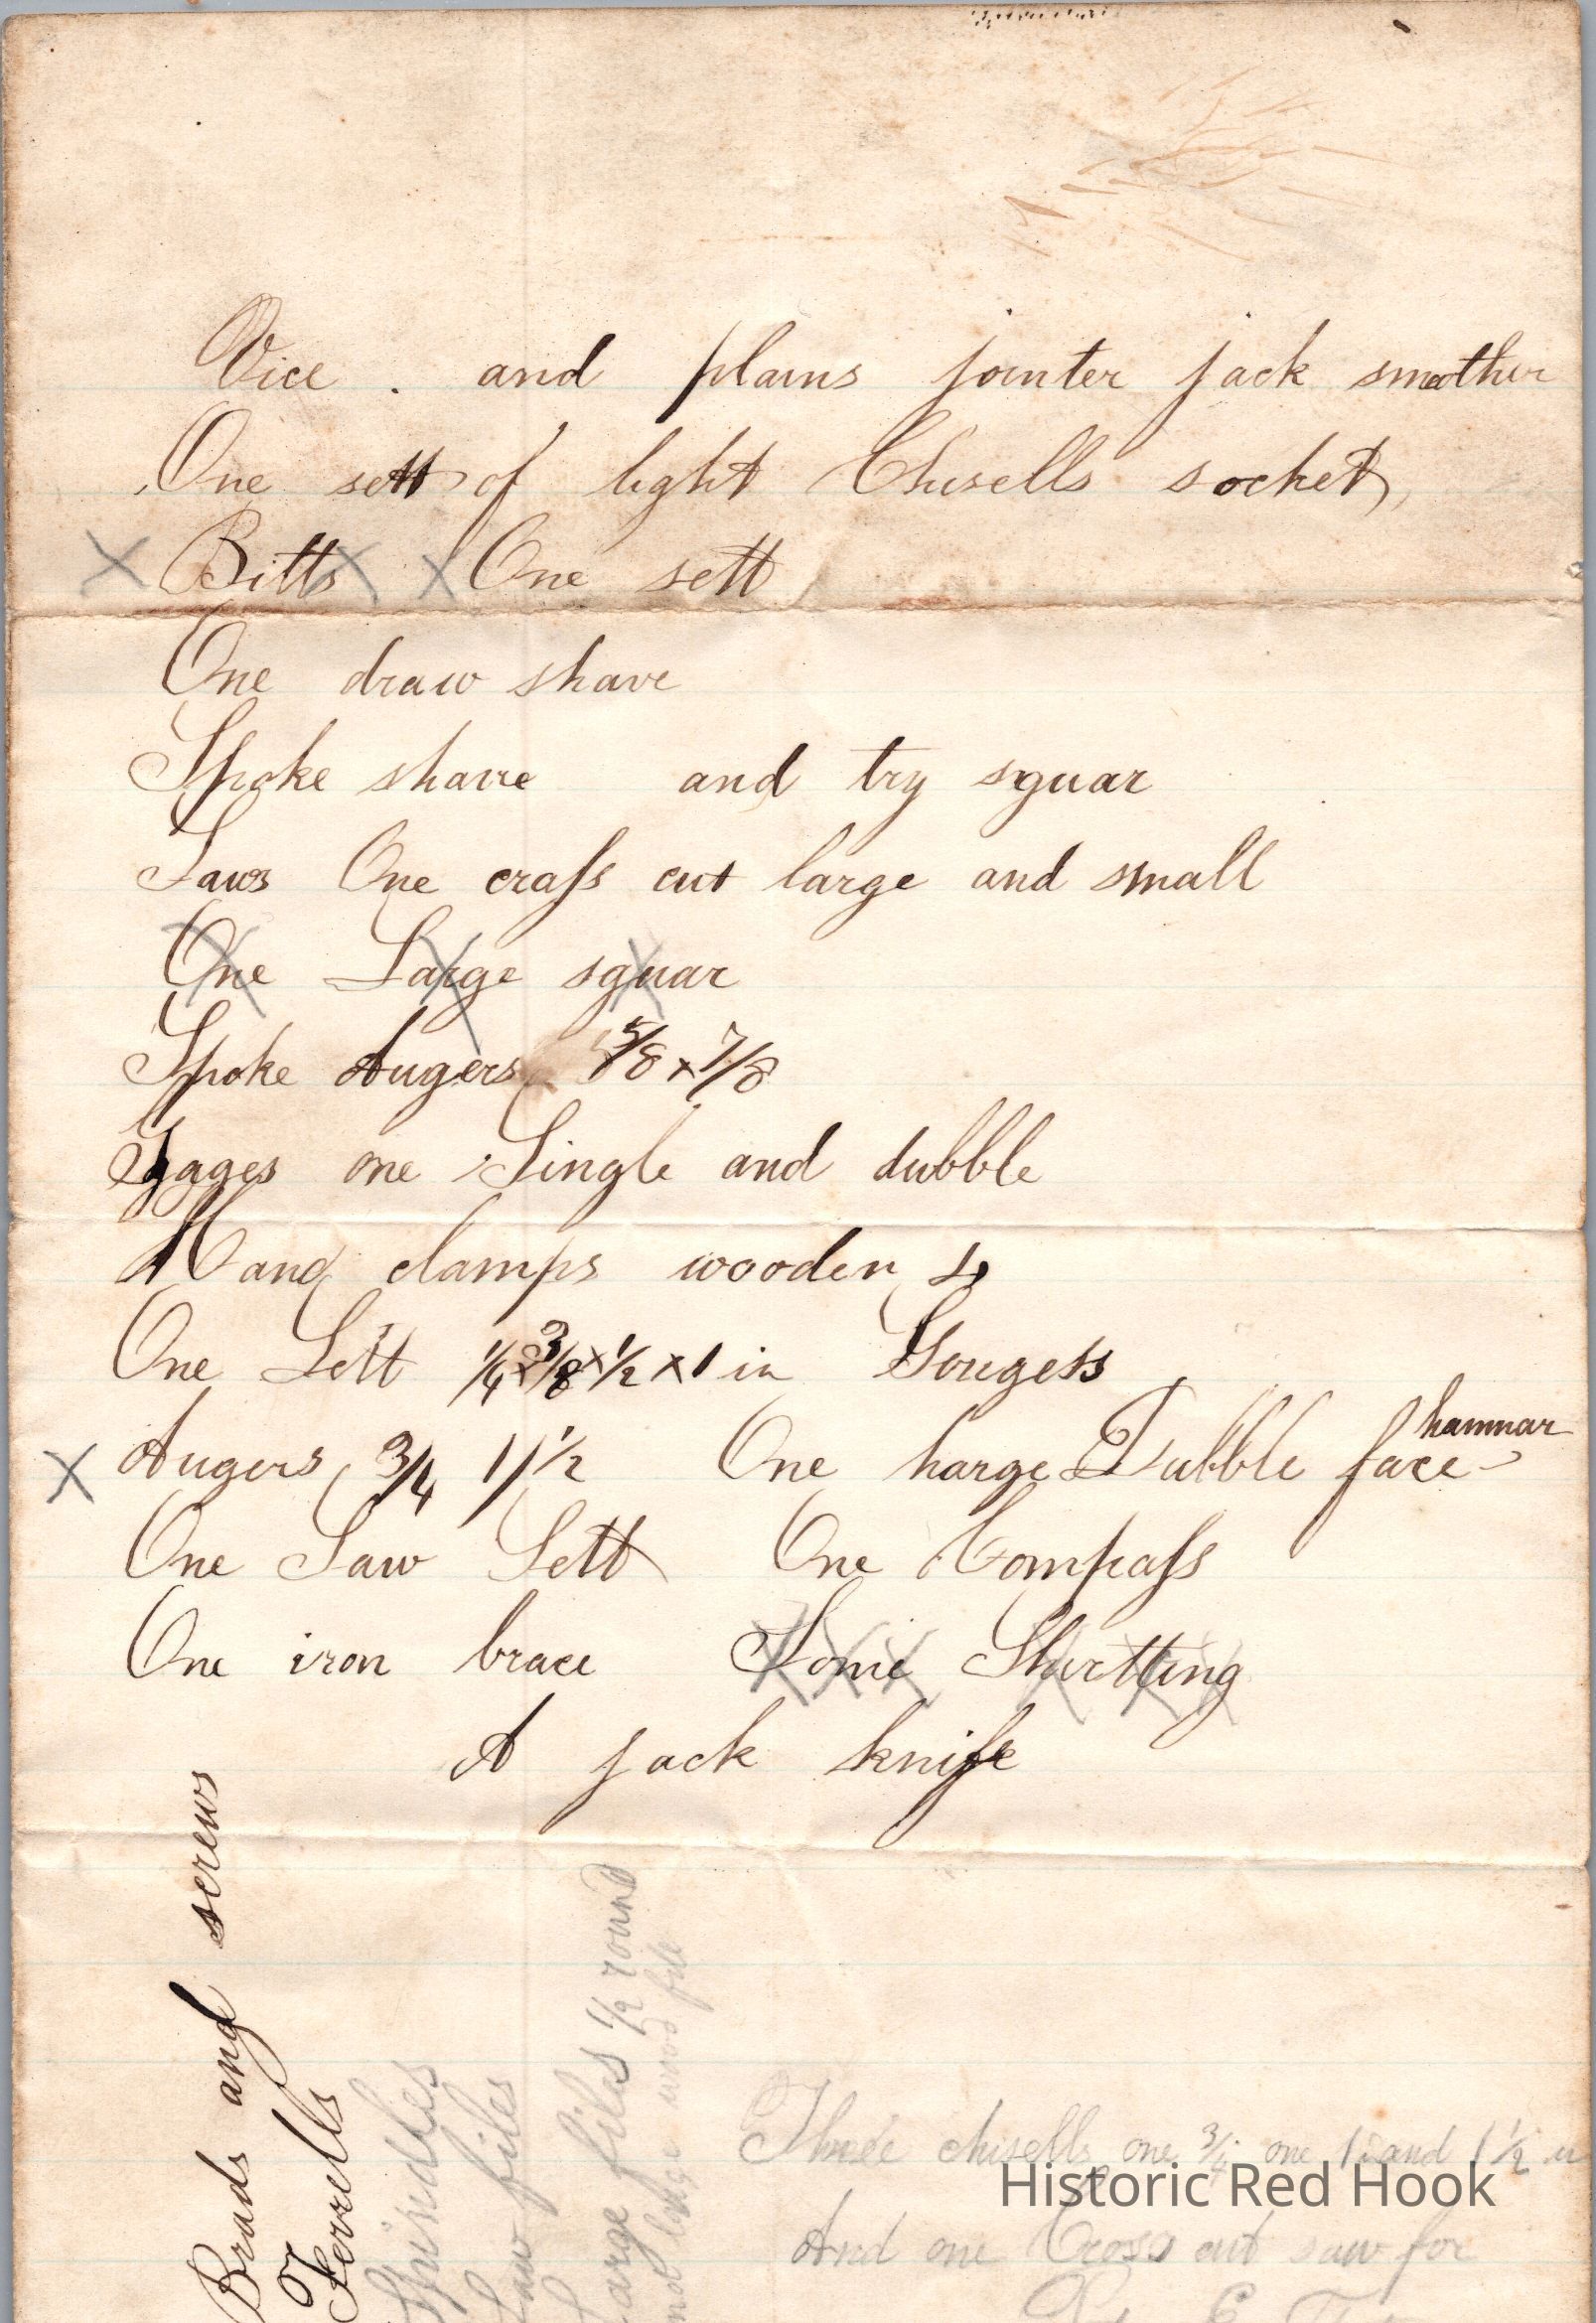 Vice . and plains jointer jack smother
One sett of light Chisells socket,
x Bitts x x One sett
One draw shave
Spoke shave and try squar
Saws One crass cut large and small
One Large squar
Spoke Augers 5/8 x 7/8
Gages one Single and dubble
Hand clamps wooden
One Sett 1/4 x 3/8 x 1/2 x 1 in Gougess
hammar
x Augers 3/4 1 1/2 One large Dubble face
One Saw Sett One Compass
One iron brace Some Shirtting
A jack knife
Brads and screws
Ferrells
Saw files
Large files 1/2 round
and large wood file
Three chisells one 3/4 one 1 and 1 1/2 in
And one Cross cut saw for
Historic Red Hook